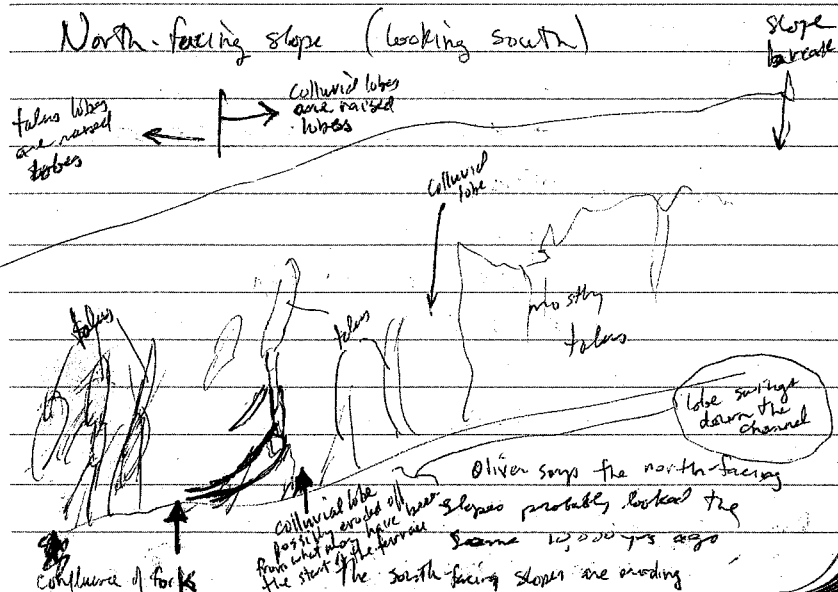 North-facing slope (looking south)
slope
talus lobes
are raised
lobes
Colluvial lobes
are raised
lobes
Colluvial
lobe
talus
talus
mostly
talus
lobe swings
down the
channel
Oliver says the north-facing
slopes probably looked the
same 10,000 yrs ago
The south-facing slopes are eroding
colluvial lobe
possibly eroded off
from what may have been
the start of the terrace
confluence of fork